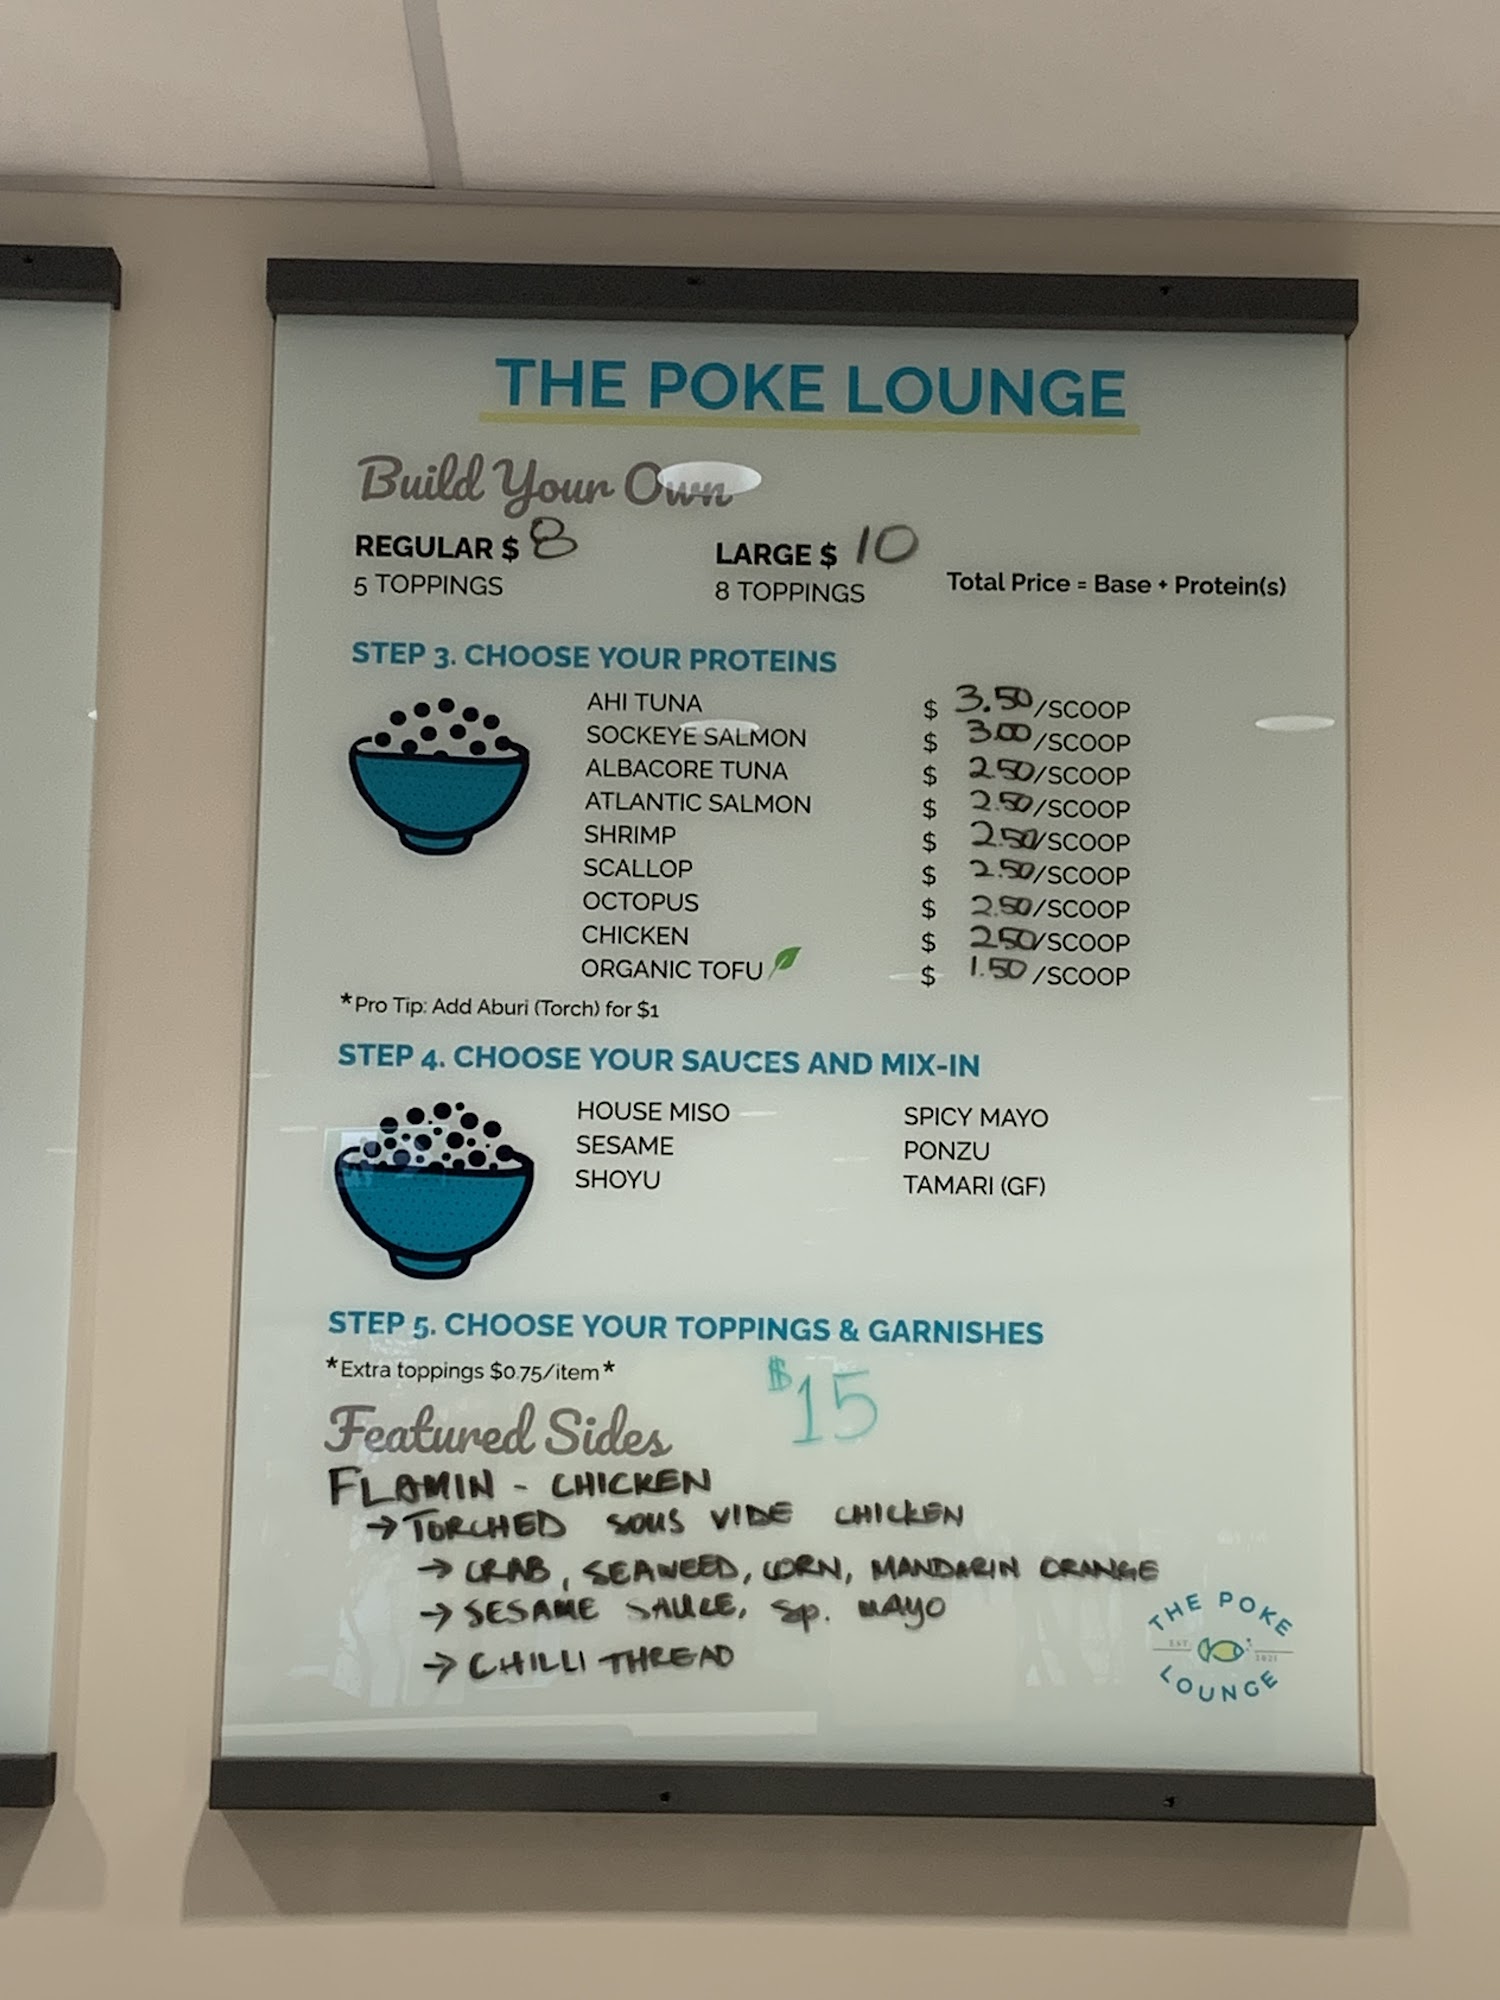 THE POKE LOUNGE
Build Your Own
REGULAR $ 8
5 TOPPINGS
LARGE $ 10
8 TOPPINGS
Total Price = Base + Protein(s)
STEP 3. CHOOSE YOUR PROTEINS
AHI TUNA $ 3.50/SCOOP
SOCKEYE SALMON $ 3.00/SCOOP
ALBACORE TUNA $ 2.50/SCOOP
ATLANTIC SALMON $ 2.50/SCOOP
SHRIMP $ 2.50/SCOOP
SCALLOP $ 2.50/SCOOP
OCTOPUS $ 2.50/SCOOP
CHICKEN $ 2.50/SCOOP
ORGANIC TOFU $ 1.50/SCOOP
*Pro Tip: Add Aburi (Torch) for $1
STEP 4. CHOOSE YOUR SAUCES AND MIX-IN
HOUSE MISO SPICY MAYO
SESAME PONZU
SHOYU TAMARI (GF)
STEP 5. CHOOSE YOUR TOPPINGS & GARNISHES
*Extra toppings $0.75/item*
$15
Featured Sides
FLAMIN - CHICKEN
→ TORCHED SOUS VIDE CHICKEN
→ CRAB, SEAWEED, CORN, MANDARIN ORANGE
→ SESAME SAUCE, Sp. MAYO
→ CHILLI THREAD
THE POKE
EST. 2021
LOUNGE